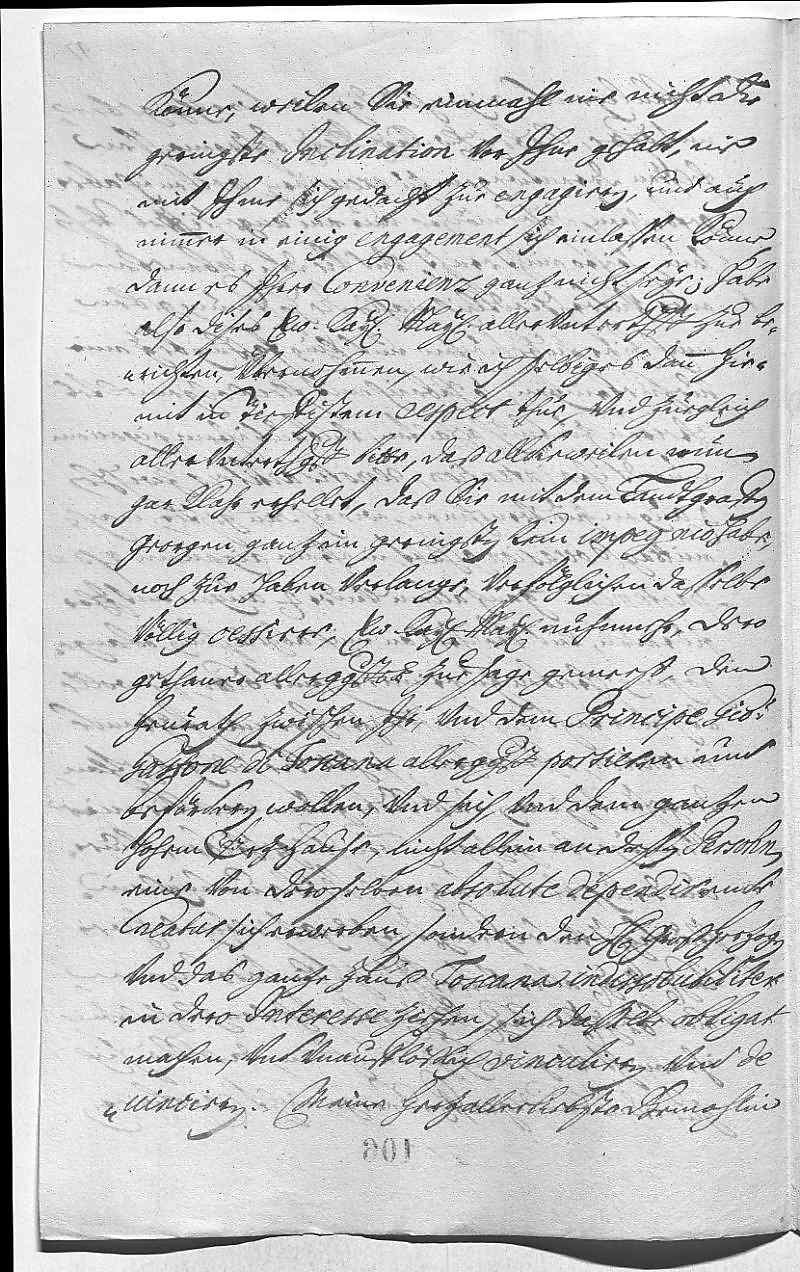 könne, weilen Sie einmahl nie nicht die
geringste Inclination vor Ihme gehabt, nie
mit Ihme sich gedacht zu engagiren, und auch
nimmer in einig engagement sich einlassen könne
dann es Ihro Convenienz gantz nicht seye; habe
also dises Ew. Kay. May. allerunterthgst zu be-
richten, übernohmen, wie ich selbiges dan hie-
mit in tieffistem respect thue, und zugleich
allerunterthgst bitte, daß alldieweilen nun
gar klahr erhellet, daß Sie mit dem Landtgrafen
Georgen gantz im geringsten kein impegno habe,
noch zu haben verlange, verfolglichen dasselbe
völlig cessiret, Ew. Kay. May. nunmehr, dero
gethane allerggste zusage gemeeß, den
heurath zwischen Ihr, und dem Principe Gio:
Gastone di Toscana allerggst portiren und
befördern wollen, und sich und dem gantzen
hohem Ertzhause, nicht allein an dessen Persohn
eine von deroselben absolute dependirende
Creatur sich erwerben, sondern den H. Großhertzog
und das gantze Haus Toscana indissolubiliter
in dero Interesse ziehen, sich dasselbe obligat
machen, und unauflößlich vinculiren und de
vinciren. Meine hertzallerliebste Gemahlin
109